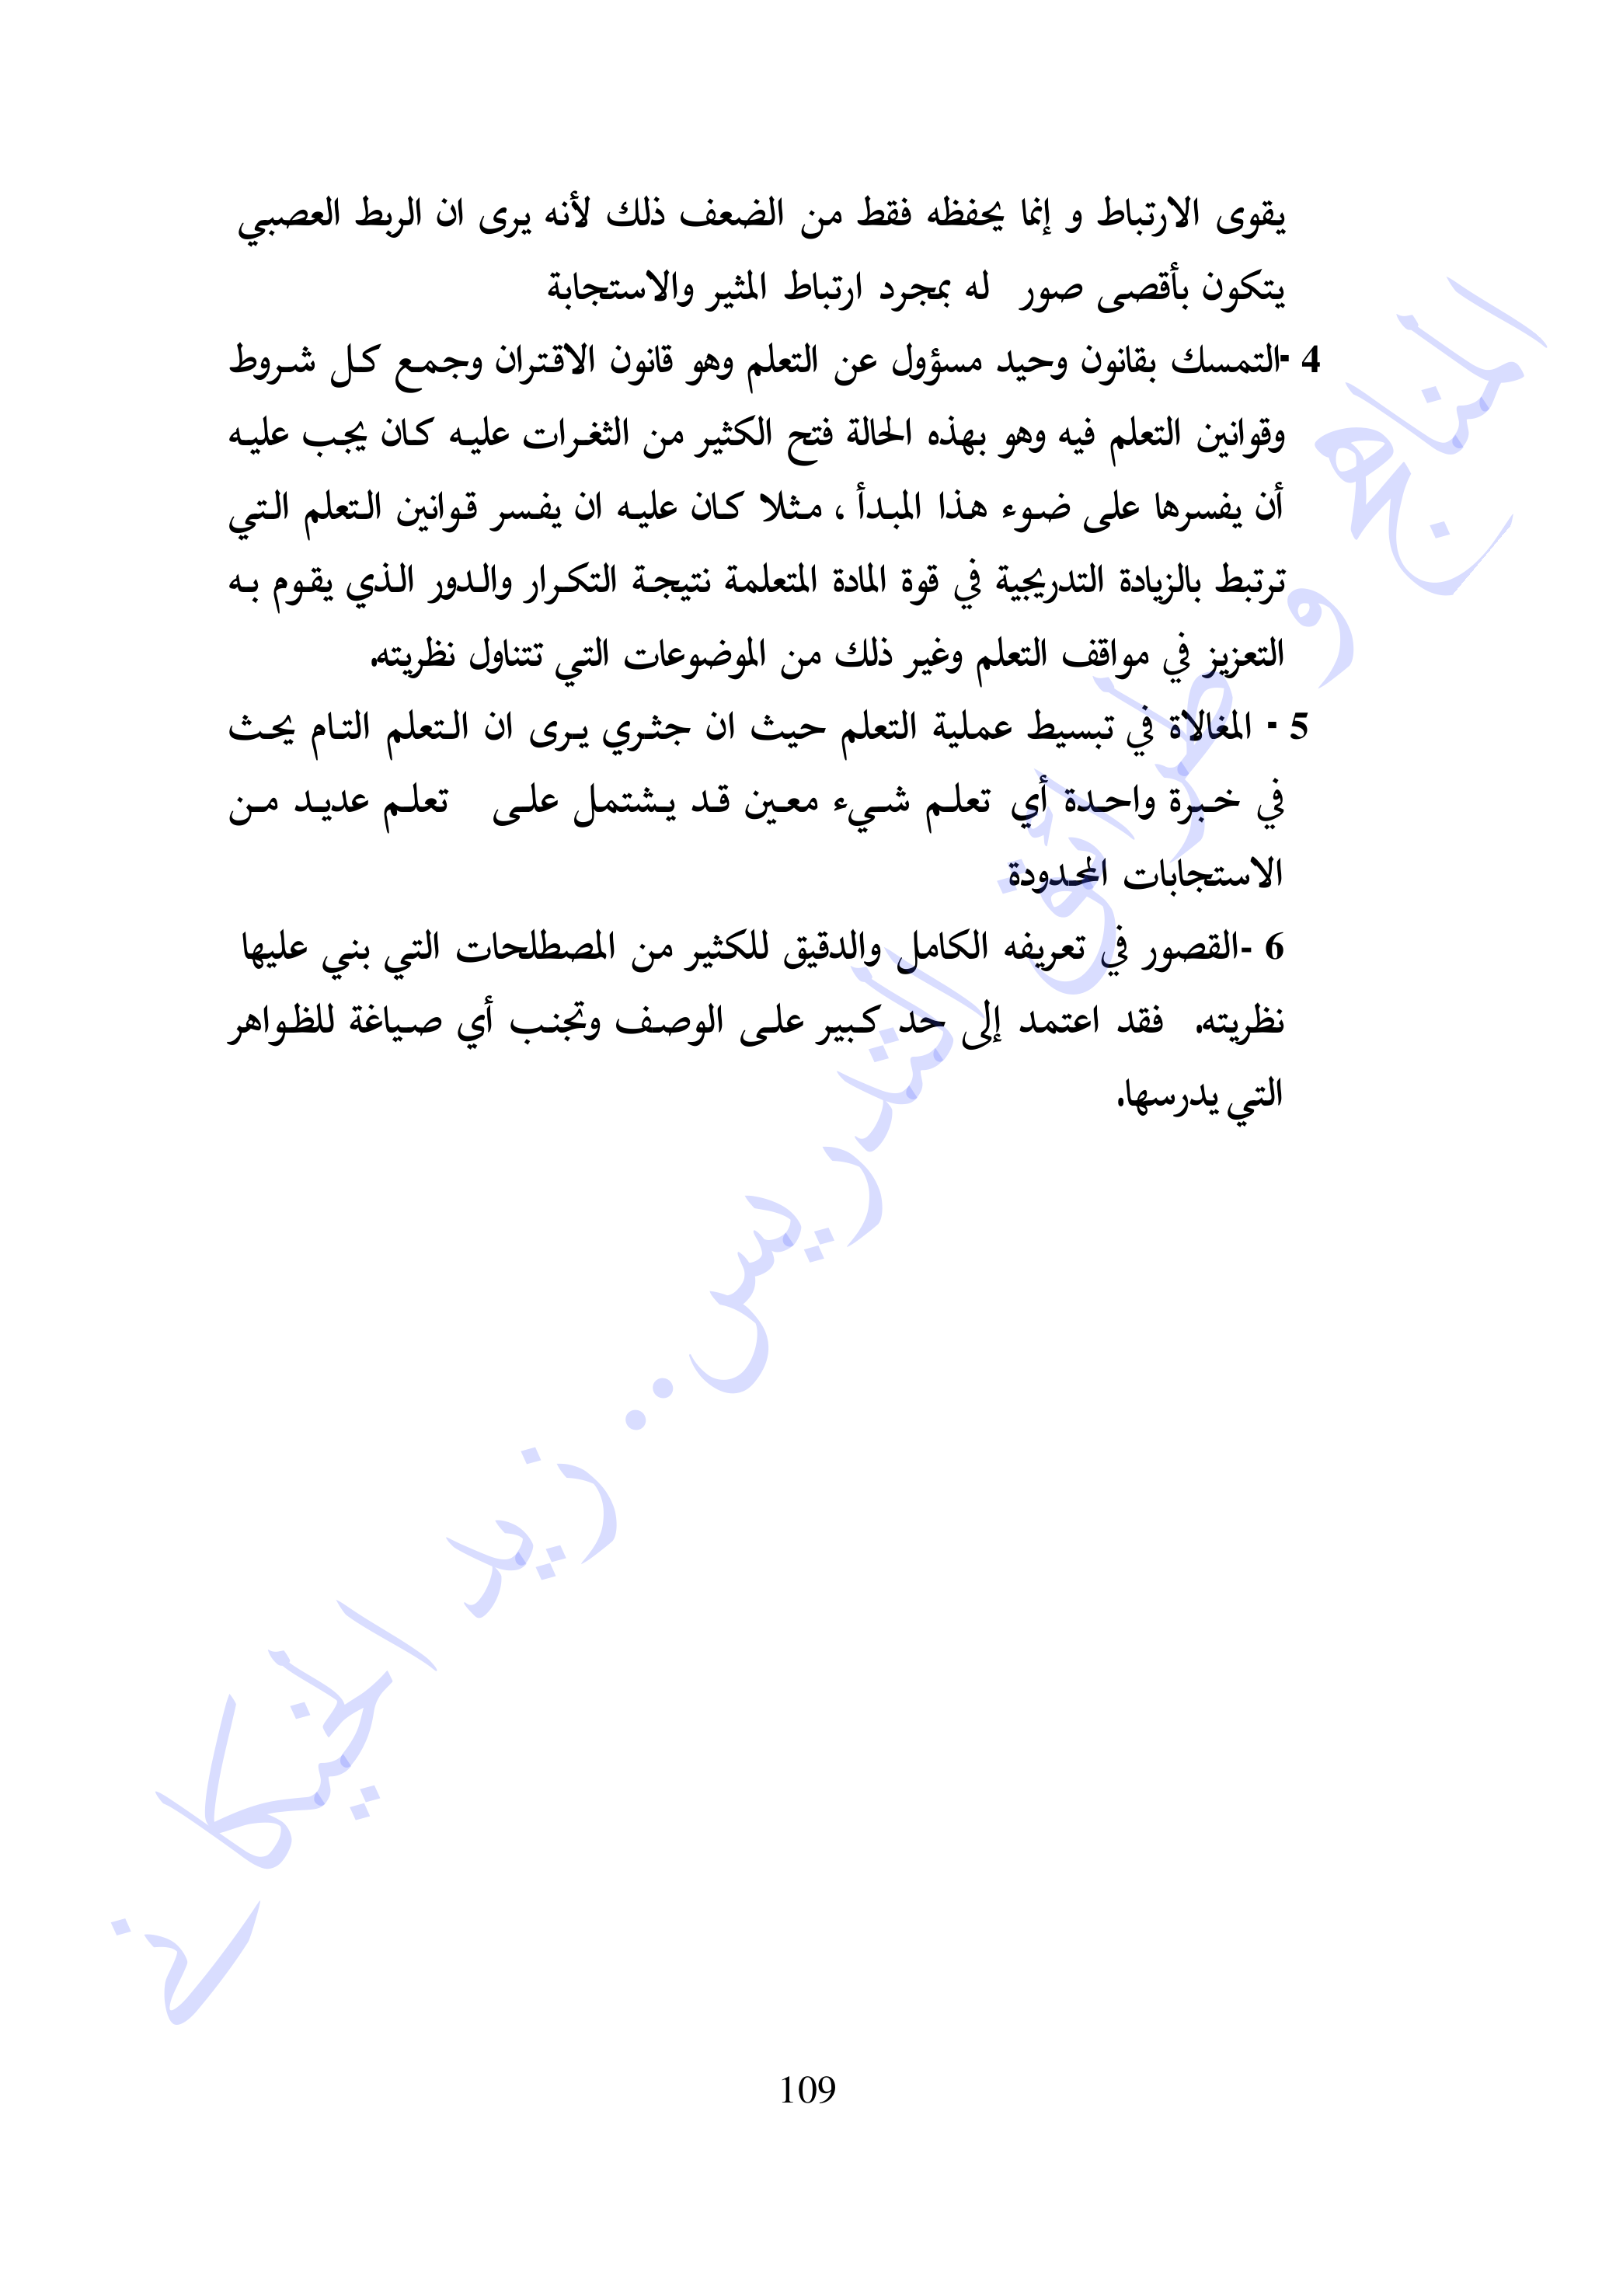 يقوى الارتباط و إنما يحفظه فقط من الضعف ذلك لأنه يرى ان الربط العصبي
يتكون بأقصى صور له بمجرد ارتباط المثير والاستجابة
4 -التمسك بقانون وحيد مسؤول عن التعلم وهو قانون الاقتران وجمع كل شروط
وقوانين التعلم فيه وهو بهذه الحالة فتح الكثير من الثغرات عليه كان يجب عليه
أن يفسرها على ضوء هذا المبدأ ، مثلا كان عليه ان يفسر قوانين التعلم التي
ترتبط بالزيادة التدريجية في قوة المادة المتعلمة نتيجة التكرار والدور الذي يقوم به
التعزيز في مواقف التعلم وغير ذلك من الموضوعات التي تتناول نظريته.
5 - المغالاة في تبسيط عملية التعلم حيث ان جثري يرى ان التعلم التام يحث
في خبرة واحدة أي تعلم شيء معين قد يشتمل على تعلم عديد من
الاستجابات المحدودة
6 -القصور في تعريفه الكامل والدقيق للكثير من المصطلحات التي بني عليها
نظريته. فقد اعتمد إلى حد كبير على الوصف وتجنب أي صياغة للظواهر
التي يدرسها.
المناهج و طرائق التدريس.. زيد الخيكاني
109